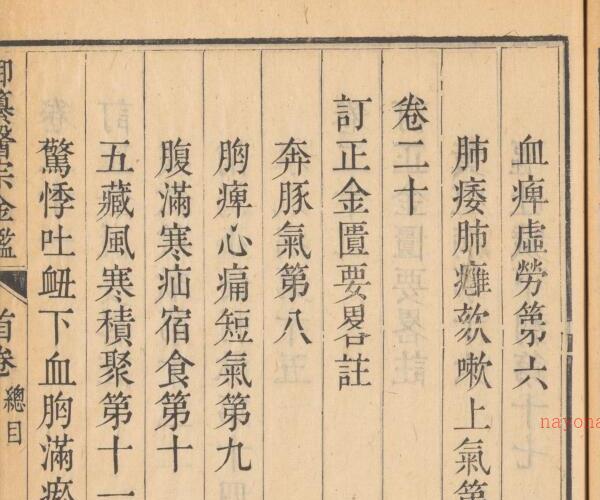 血痺虛勞第六
肺痿肺癰欬嗽上氣第
卷二十
訂正金匱要畧註
奔豚氣第八
胸痺心痛短氣第九
腹滿寒疝宿食第十
五藏風寒積聚第十一
驚悸吐衄下血胸滿瘀
御纂醫宗金鑑
首卷
總目
nayona